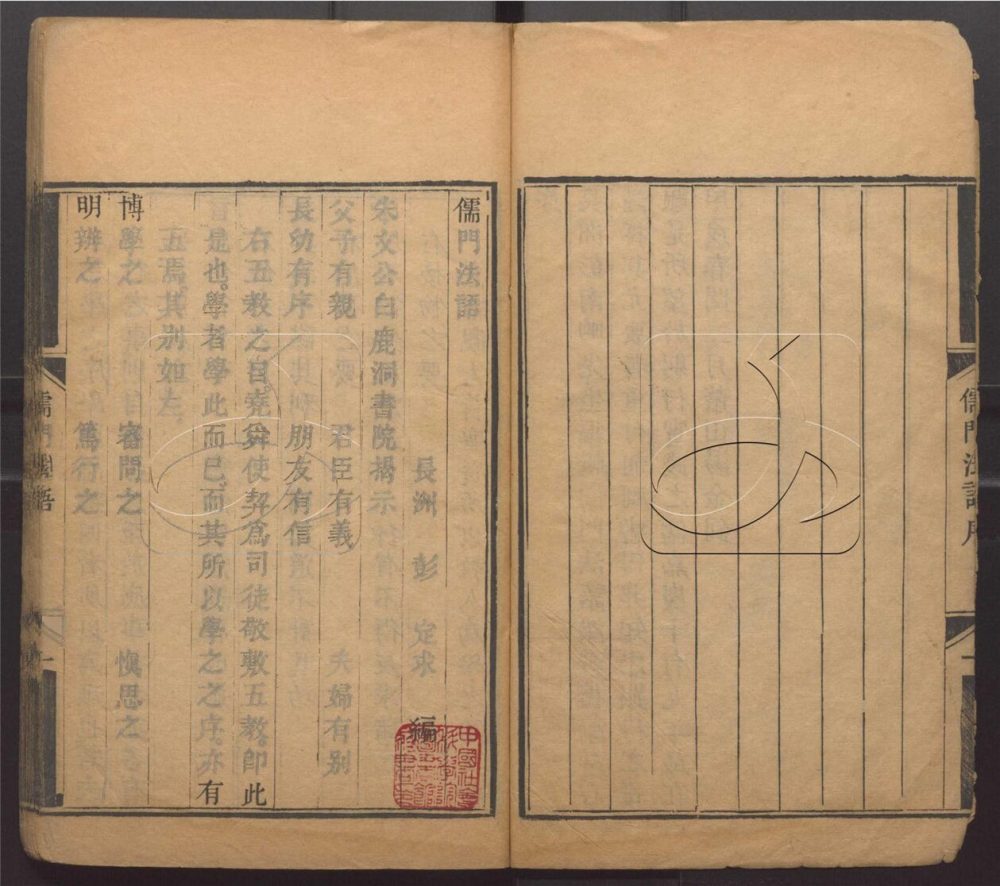 儒門法語序
一
儒門法語
長洲 彭 定求 編
朱文公白鹿洞書院揭示
父子有親 君臣有義 夫婦有别
長幼有序 朋友有信
右五教之目。堯舜使契爲司徒敬敷五教。卽此
是也。學者學此而已。而其所以學之之序。亦有
五焉。其别如左。
博學之 審問之 愼思之
明辨之 篤行之
儒門法語
一